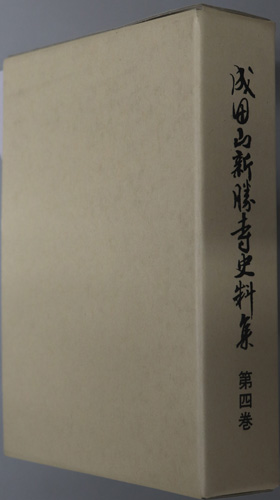 成田山新勝寺史料集 第四巻